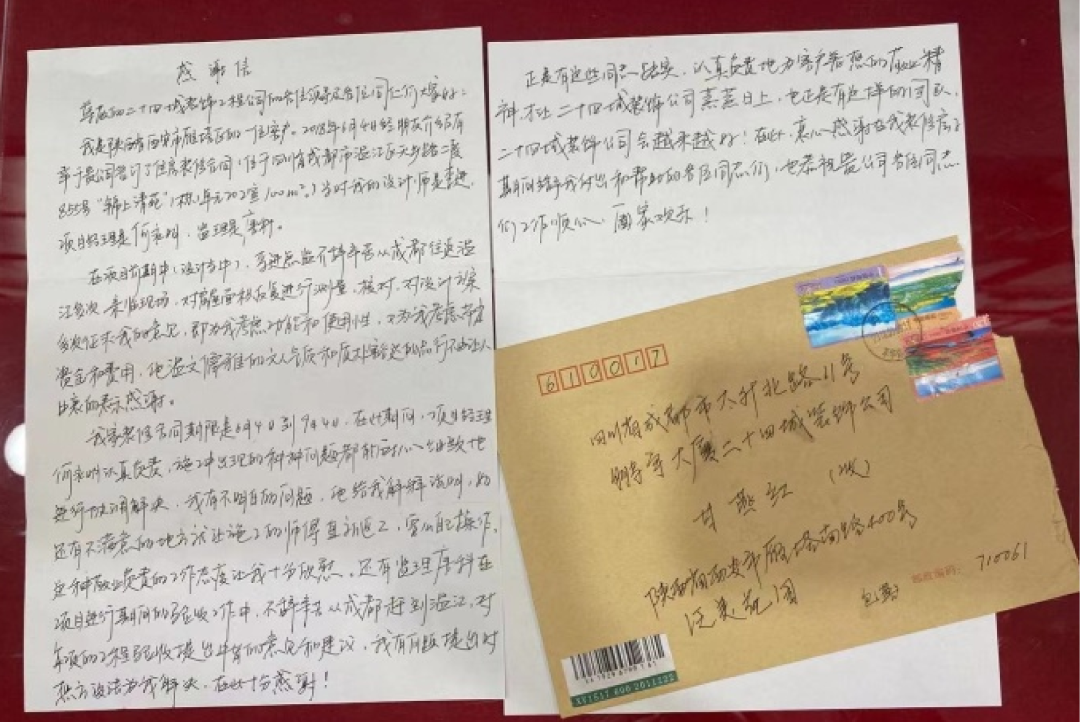 感谢信
尊敬的二十四城装饰工程公司的各位领导及各位同仁们大家好：
我是陕西省西安市雁塔区的一位客户。2018年6月4日经朋友介绍有
幸于贵公司签订了住房装修合同，住于四川省成都市温江区天乡路二段
855号“锦上清苑”1栋1单元702室100m²。）当时我的设计师是李进，
项目经理是何永明，监理是唐科。
在项目前期中（设计当中），李进总监不辞辛苦从成都往返温
江多次，亲临现场，对房屋面积反复进行测量、核对，对设计方案
多次征求我的意见，即为我考虑功能和使用性，又为我考虑节省
资金和费用，他温文儒雅的文人气质和质朴的品行不由让人
由衷的表示感谢。
我家装修合同期限是6月4日到9月4日，在此期间，项目经理
何永明认真负责，施工中出现的种种问题都能耐心细致地
进行协调解决，我有不明白的问题，他给我解释说明，如
还有不满意的地方就让施工的师傅直接返工，零以自己操作，
这种敬业负责的工作态度让我十分欣慰，还有监理唐科在
项目进行期间的验收工作中，不辞辛苦从成都赶到温江，对
每项的工程验收提出中肯的意见和建议，我有问题提出时
想方设法为我解决，在此十分感谢！
正是有这些同志踏实、认真负责地为客户着想的敬业精
神，才让二十四城装饰公司蒸蒸日上，也正是有这样的团队，
二十四城装饰公司会越来越好！在此，衷心感谢在我装修房子
期间给予我付出和帮助的各位同志们，也恭祝贵公司各位同志
们工作顺心、阖家欢乐！
610017
四川省成都市太升北路11号
大厦二十四城装饰公司
甘燕红（收）
陕西省西安市雁塔南路400号
邮政编码：710061
XV1517 600 2011122